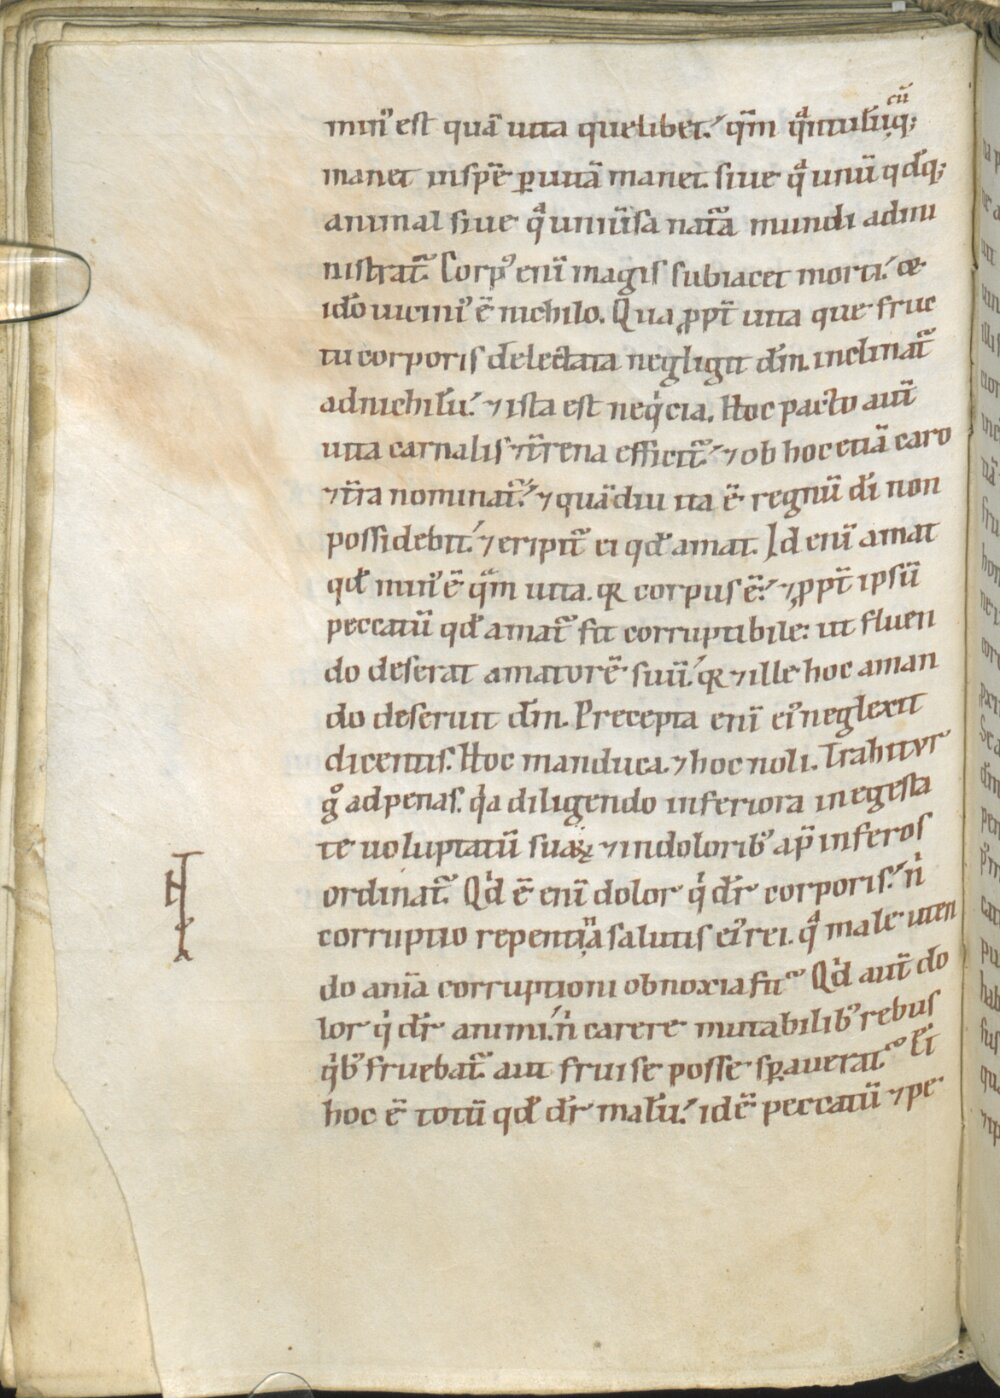 min᾿ est quā uita quelibet.᾿ qm̄ qͣntulūcūq;
manet inspēe ꝑ uitā manet. siue qͣ unū qd̄q;
animal siue qͣ uniūsa natᷓa mundi admi
nistrat᷑. Corp᾿ enī magis subiacet morti.᾿ &
idō uicini᾿ ē nichilo. Qua ꝓpt̄ uita que fruc
tu corporis delectata negligit dm̄. inclinat᷑
adnichilū.᾿ ⁊ ista est neqͥcia. Hoc pacto aut̄
uita carnalis ⁊ t̄rena efficit᷑.᾿ ⁊ ob hoc etiā caro
⁊ t̄ra nominat᷑.᾿ ⁊ quādiu ita ē regnū dī non
possidebit.᾿ ⁊ eripit᷑ ei qd̄ amat. Id enī amat
qd̄ min᾿ ē qͣm uita. qꝛ corpus ē.᾿ ⁊ ꝓpt̄ ipsū
peccatū qd̄ amat᷑ fit corruptibile: ut fluen
do deserat amatorē suū.᾿ qꝛ ⁊ ille hoc aman
do deseruit dm̄. Precepta enī ei᾿ neglexit
dicentis.᾿ Hoc manduca. ⁊ hoc noli. Trahitvr
gͦ ad penas. qͥa diligendo inferiora in egesta
te uoluptatū suaꝝ ⁊ indolorib᾿ ap̄ inferos
ordinat᷑. Qͥd ē enī dolor qͥ dr̄ corporis.᾿ nͥ
corruptio repentīa salutis ei᾿ rei. qͣ male uten
do anīa corruptioni obnoxia fit᷑ Qͥd aut̄ do
lor qͥ dr̄ animi.᾿ nͥ carere mutabilib᾿ rebus
qͥb᾿ fruebat᷑. aut frui se posse sꝑauerat᷑ Et
hoc ē totū qd̄ dr̄ malū.᾿ idē peccatū ⁊ pe